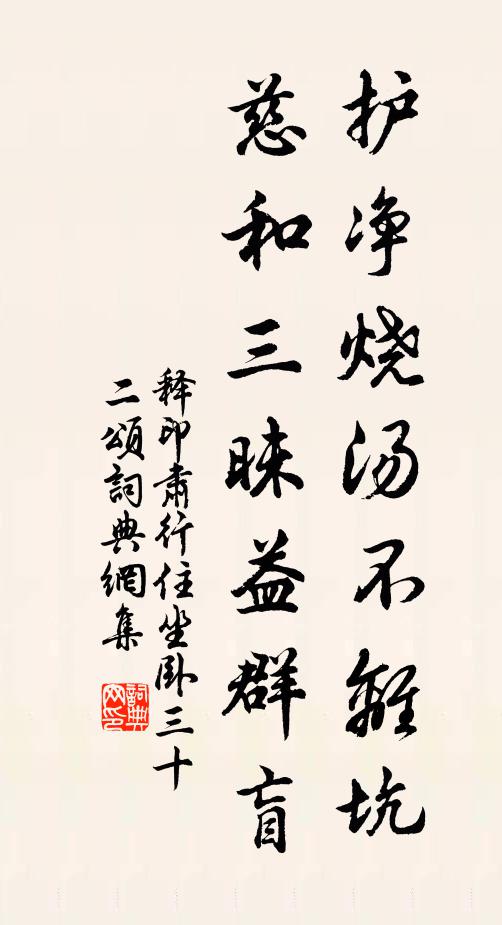 护净烧汤不離坑
慈和三昧益群盲
释印肃行住坐卧三十
二頌詞典網集
詞典网印